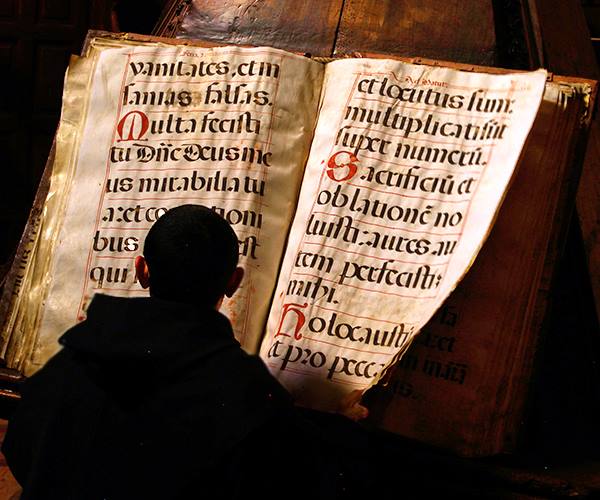 vanitates, et in
sanias falsas.
Multa fecisti
tu Dn̄e Deus me
us mirabilia tu
a: et co tioni
bus est
qui
et locutus sum:
multiplicati sūt
super numerū.
Sacrificiū et
oblationē no
luisti: aures au
tem perfecisti
mihi.
Holocausti
et pro pecca